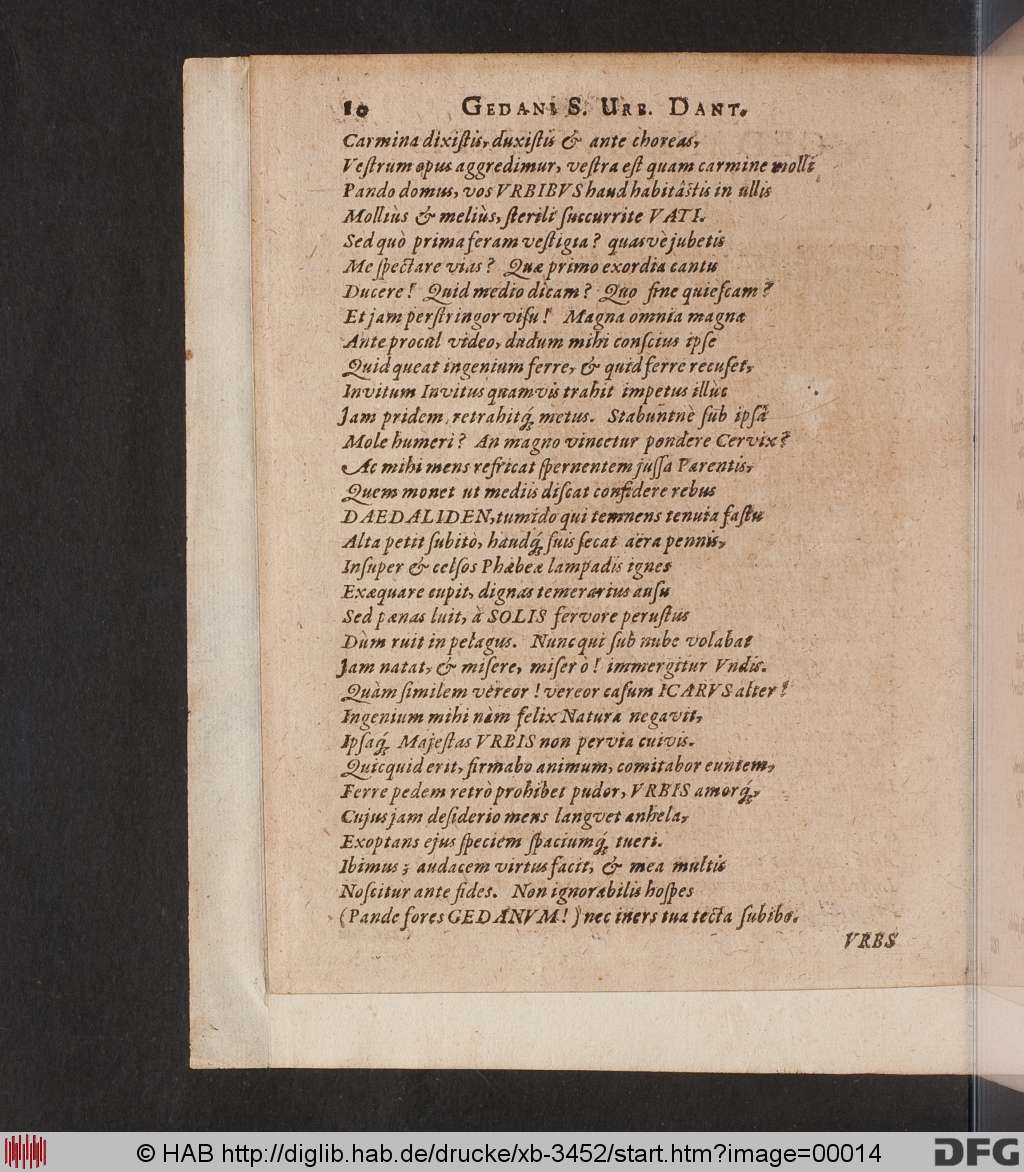 10 GEDANI S. URB. DANT.
Carmina dixiſtis, duxiſtis & ante choreas,
Veſtrum opus aggredimur, veſtra eſt quam carmine molli
Pando domus, vos VRBIBVS haud habitâſtis in ullis
Molliùs & meliùs, ſterili ſuccurrite VATI.
Sed quò prima feram veſtigia? quasvè jubetis
Me ſpectare vias? Quæ primo exordia cantu
Ducere! Quid medio dicam? Quo fine quieſcam?
Et jam perſtringor viſu! Magna omnia magnæ
Ante procul video, dudum mihi conſcius ipſe
Quid queat ingenium ferre, & quid ferre recuſet,
Invitum Invitus quamvis trahit impetus illuc
Jam pridem, retrahitq́; metus. Stabuntnè ſub ipſâ
Mole humeri? An magno vincetur pondere Cervix?
Ac mihi mens refricat ſpernentem juſſa Parentis,
Quem monet ut mediis diſcat confidere rebus
DAEDALIDEN, tumido qui temnens tenuia faſtu
Alta petit ſubitò, haudq́; ſuis ſecat aëra pennis,
Inſuper & celſos Phæbeæ lampadis ignes
Exæquare cupit, dignas temerarius auſu
Sed pænas luit, à SOLIS fervore peruſtus
Dùm ruit in pelagus. Nunc qui ſub nube volabat
Jam natat, & miſere, miſer ò! immergitur Vndis.
Quàm ſimilem vereor! vereor caſum ICARVS alter!
Ingenium mihi nàm felix Natura negavit,
Ipſaq́; Majeſtas VRBIS non pervia cuivis.
Quicquid erit, firmabo animum, comitabor euntem,
Ferre pedem retrò prohibet pudor, VRBIS amorq́;,
Cujus jam deſiderio mens langvet anhela,
Exoptans ejus ſpeciem ſpaciumq́; tueri.
Ibimus; audacem virtus facit, & mea multis
Noſcitur ante fides. Non ignorabilis hoſpes
(Pande fores GEDANVM!) nec iners tua tecta ſubibo.
VRBS
© HAB http://diglib.hab.de/drucke/xb-3452/start.htm?image=00014
DFG